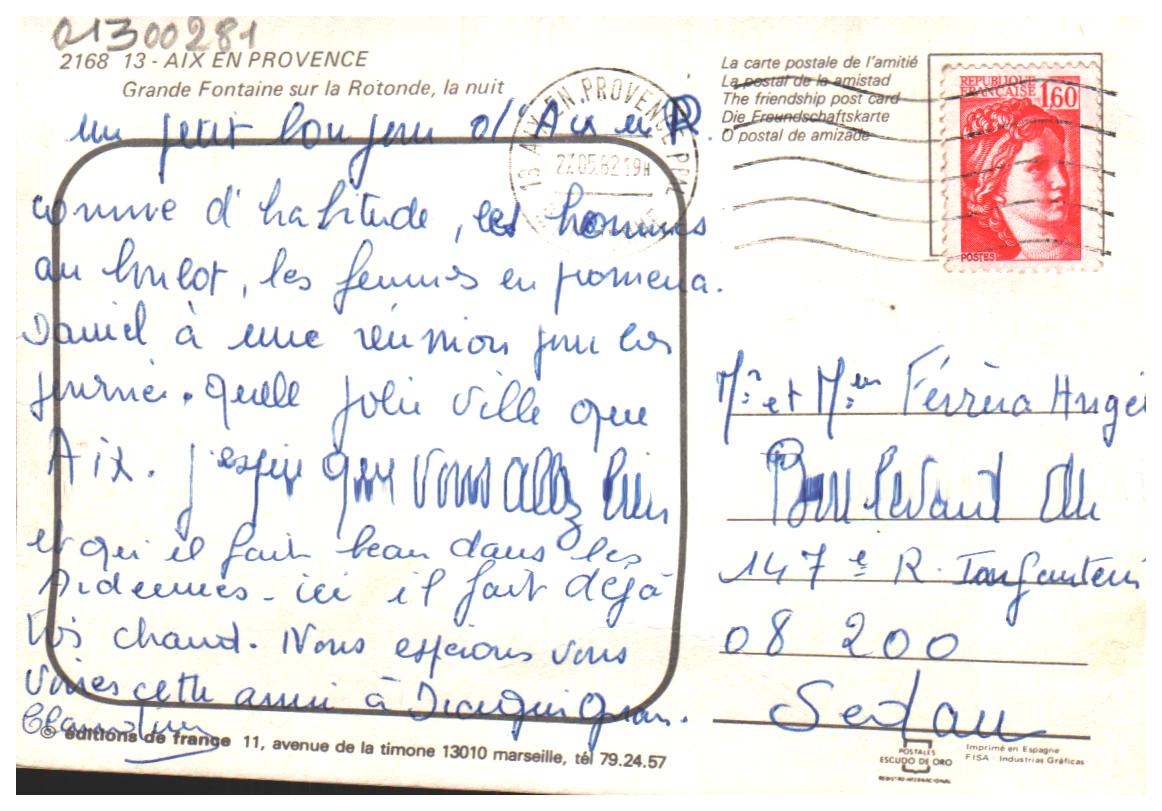 01300281
2168 13 - AIX EN PROVENCE
Grande Fontaine sur la Rotonde, la nuit
un petit bonjour d'Aix en P.
comme d'habitude, les hommes
au boulot, les femmes en promena.
Daniel à une réunion pour la
journée. Quelle jolie ville que
Aix. J'espère que vous allez bien
et qui il fait beau dans les
Ardennes - ici il fait déjà
très chaud. Nous espérons vous
voir cette année à Draguignan.
© éditions de france 11, avenue de la timone 13010 marseille, tél 79.24.57
13 AIX EN PROVENCE PPL
27.05.82 19H
La carte postale de l'amitié
La postal de la amistad
The friendship post card
Die Freundschaftskarte
O postal de amizade
REPUBLIQUE
FRANCAISE 1,60
POSTES
Mr et Mme Férrèra Ange
Boulevard du
147 e R. Infanterie
08 200
Sedan
POSTALES
ESCUDO DE ORO
REGISTRO INTERNACIONAL
Imprimé en Espagne
FISA - Industrias Gráficas